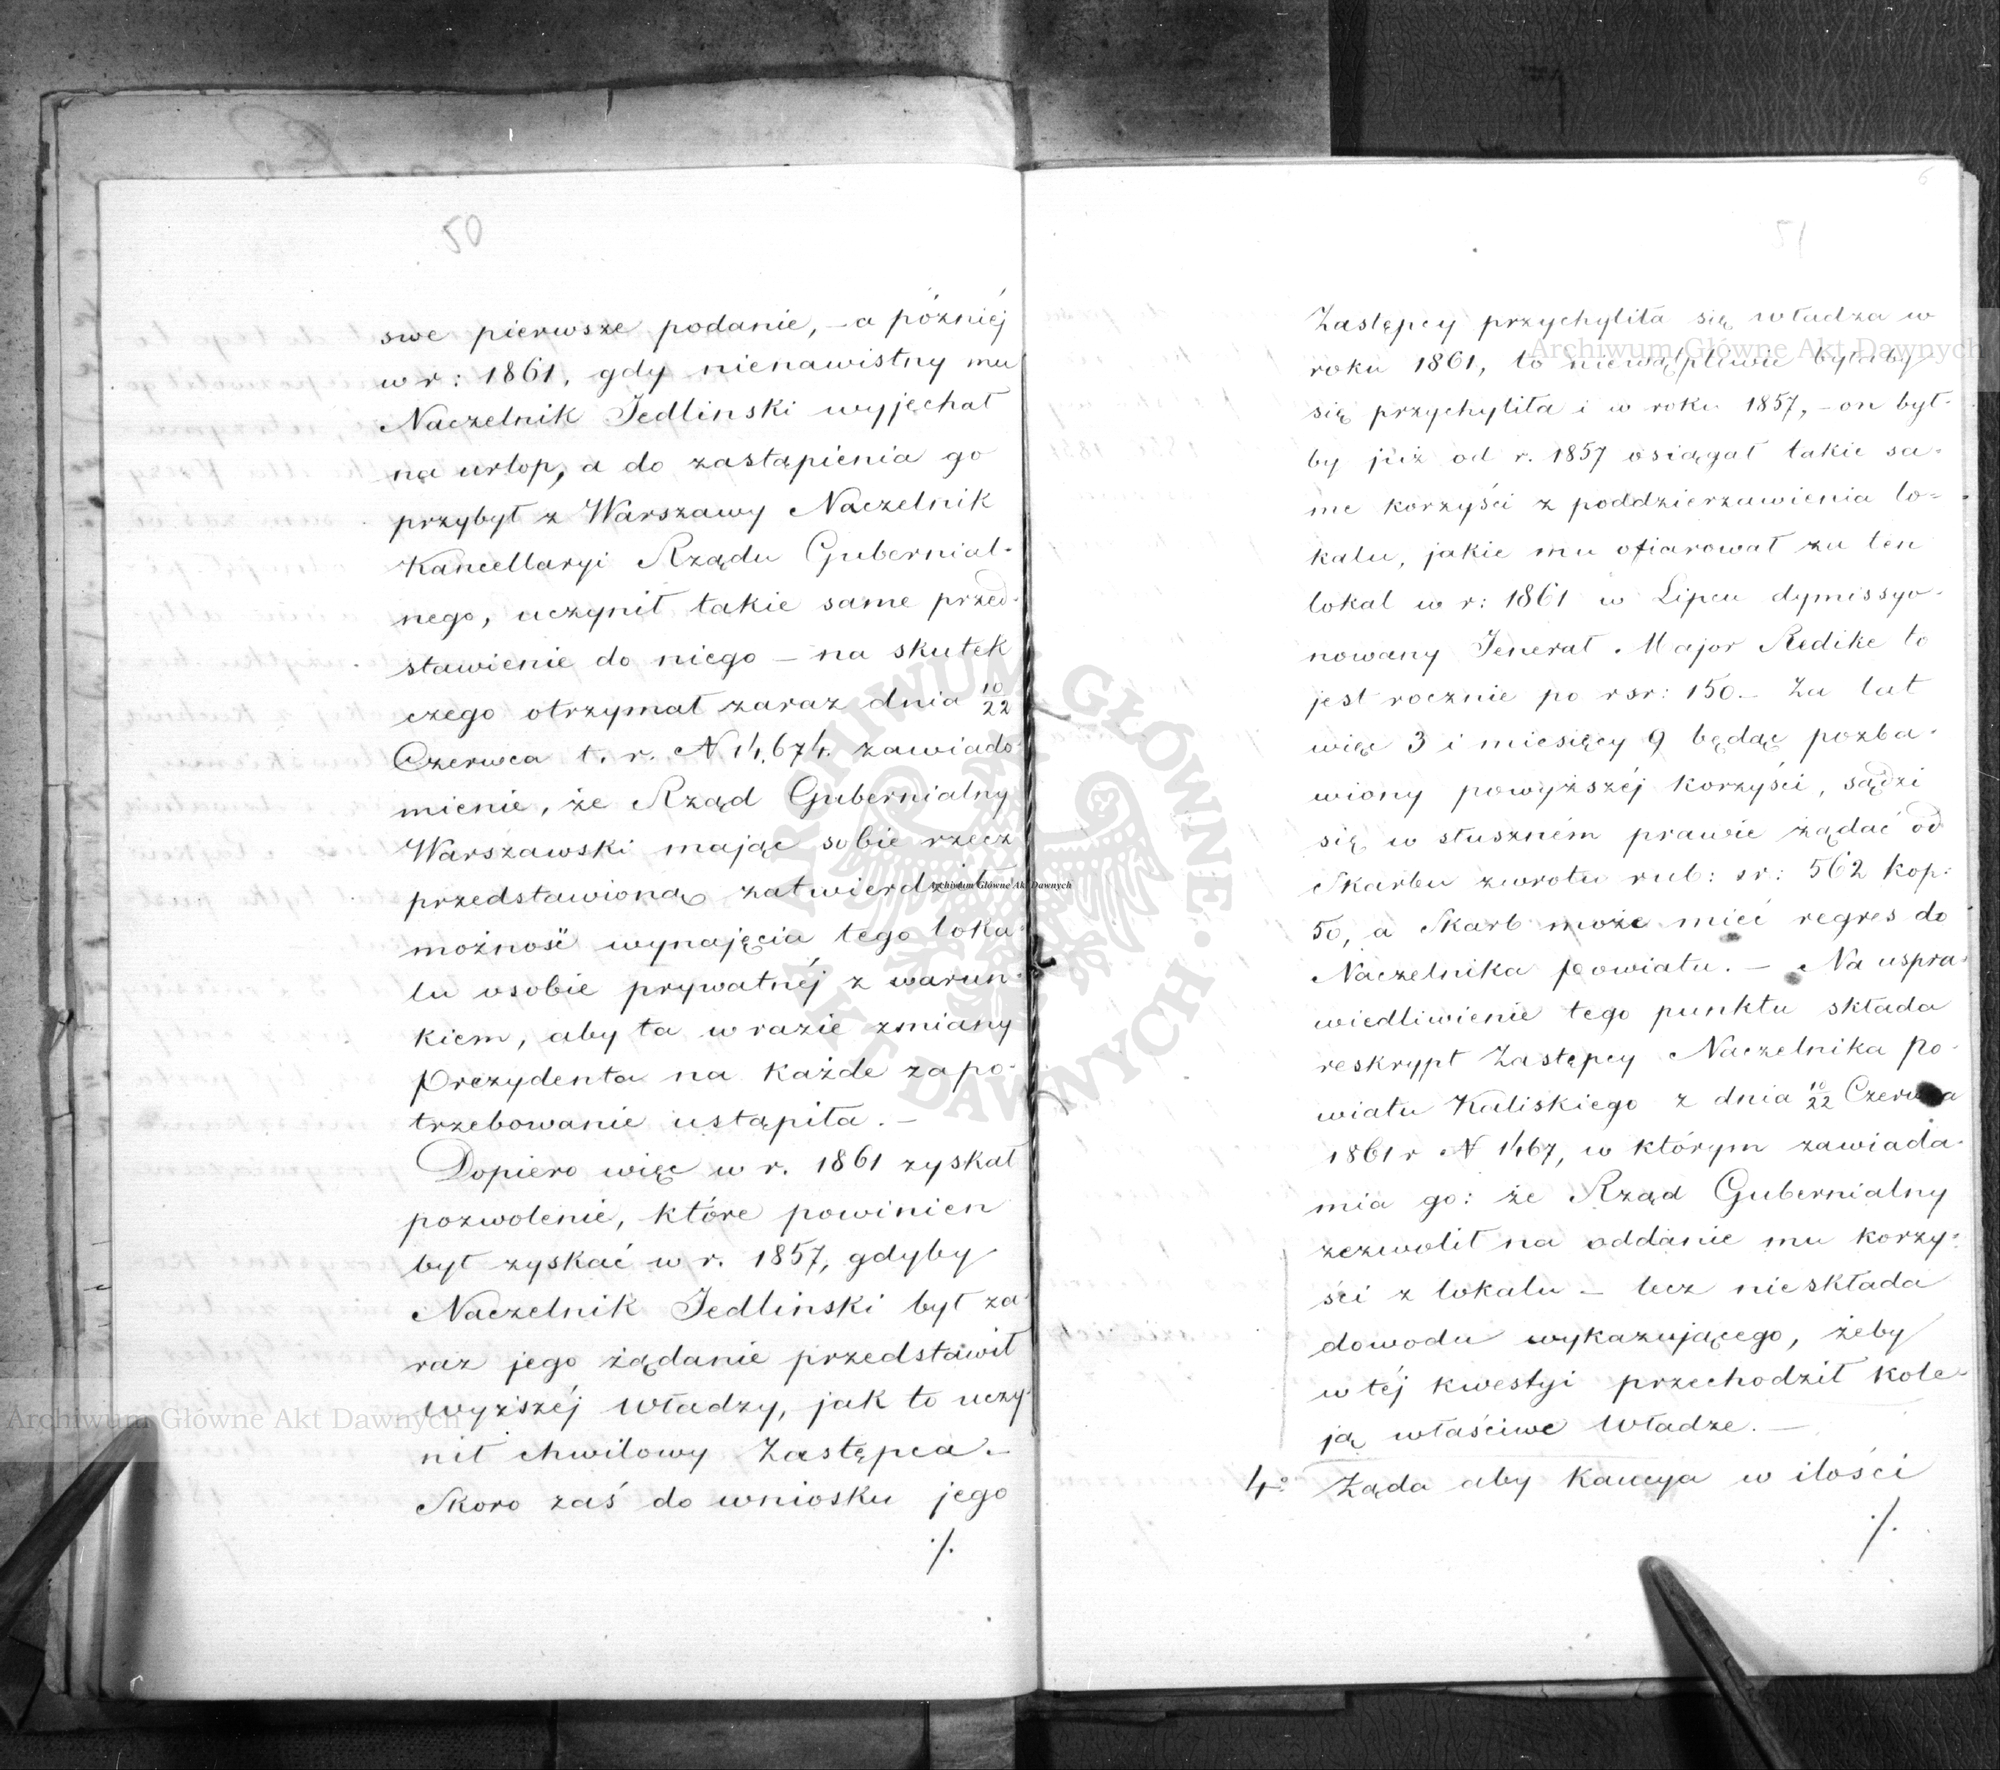 50
swe pierwsze podanie, – a późniéj
w r: 1861, gdy nienawistny mu
Naczelnik Jedlinski wyjęchał
na urlop, a do zastąpienia go
przybył z Warszawy Naczelnik
Kancellaryi Rządu Gubernial-
nego, uczynił takie same przed-
stawienie do niego – na skutek
czego otrzymał zaraz dnia 10/22
Czerwca t. r. N 14,674. zawiado-
mienie, że Rząd Gubernialny
Warszawski mając sobie rzecz
przedstawioną zatwierdził
możność wynajęcia tego loka-
lu osobie prywatnéj z warun-
kiem, aby ta w razie zmiany
Prezydenta na każde zapo-
trzebowanie ustąpiła. –
Dopiero więc w r. 1861 zyskał
pozwolenie, które powinien
był zyskać w r. 1857, gdyby
Naczelnik Jedlinski był za-
raz jego żądanie przedstawił
wyższéj Władzy, jak to uczy-
nił chwilowy Zastępca –
Skoro zaś do wniosku jego
./.
6
51
Zastępcy przychyliła się władza w
roku 1861, to niewątpliwie byłaby
się przychyliła i w roku 1857, – on był-
by już od r. 1857 osiągał takie sa-
me korzyści z poddzierzawienia lo-
kalu, jakie mu ofiarował za ten
lokal w r: 1861 w Lipcu dymissyo-
nowany Jenerał Major Redike to
jest rocznie po rsr: 150. – Za lat
więc 3 i miesięcy 9 będąc pozba-
wiony powyższéj korzyści, sądzi
się w słuszném prawie żądać od
Skarbu zwrotu rub: sr: 562 kop:
50, a Skarb może mieć regres do
Naczelnika Powiatu. – Na uspra-
wiedliwienie tego punktu składa
reskrypt Zastępcy Naczelnika Po-
wiatu Kaliskiego z dnia 10/22 Czerwca
1861 r N 1467, w którym zawiada-
mia go: że Rząd Gubernialny
zezwolił na oddanie mu korzy-
ści z lokalu – lecz nie składa
dowodu wykazującego, żeby
w téj kwestyi przechodził kole-
ją właściwe Władze. –
4o Żąda aby Kaucya w ilości
./.
Archiwum Główne Akt Dawnych
Archiwum Główne Akt Dawnych
Archiwum Główne Akt Dawnych
ARCHIWUM GŁÓWNE AKT DAWNYCH